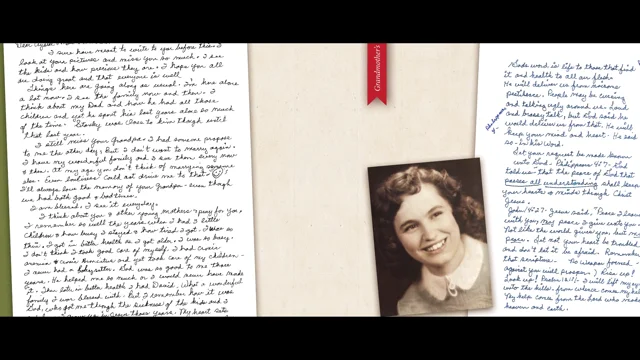 I sure have meant to write to you before this. I
look at your pictures and miss you so much. I see
the kids and how precious they are. I hope you all
are doing great and that everyone is well.
Things here are going along as usual. I'm home alone
a lot now. I see the family now and then. I
think about my Dad and how he had all those
children and yet he spent his last years alone so much
of the time.
that last year.
I still miss your Grandpa. I had someone propose
to me the other day. But I don't want to marry again.
I have my wonderful family and I see them every now
& then. At my age you don't think of marrying
I'll always love the memory of your Grandpa - even though
we had both good & bad times.
I am blessed. I see it everyday.
I think about you & other young mothers & pray for you.
I remember so well the years when I had 3 little
children & how busy I stayed & how tired I got.
thin. I got in better health as I got older. I was so busy.
I don't think I took good care of myself.
and yet took care of my children -
I never had a babysitter. God was so good to me those
years. He helped me so much or I could never have made
it. Then later in better health I had David. What a wonderful
family I was blessed with. But I remember how it was
God who got me through the sickness of the kids and I
Grandmother's
Gods word is life to those that find
it and health to all our flesh.
He will deliver us from noisome
pestilence. People may be cursing
and talking ugly around us, loud
and brassy talk, but God said he
would deliver us from that. He will
keep your mind and heart. He said
so - in his Word.
Let your request be made known
unto God. Philippians 4:7 - God
told us - that the peace of God that
passes all understanding shall keep
your hearts & minds through Christ
Jesus.
John 14:27 Jesus said, "Peace I leave
with you, my peace I give unto you -
Not like the world gives you, but my
peace. Let not your heart be troubled
and don't let it be afraid. Remember
that scripture. No weapon formed
against you will prosper. Rise up!
Look up! Psalm 121:1 I will lift my eyes
unto the hills from whence comes my help
My help comes from the Lord who made
heaven and earth.